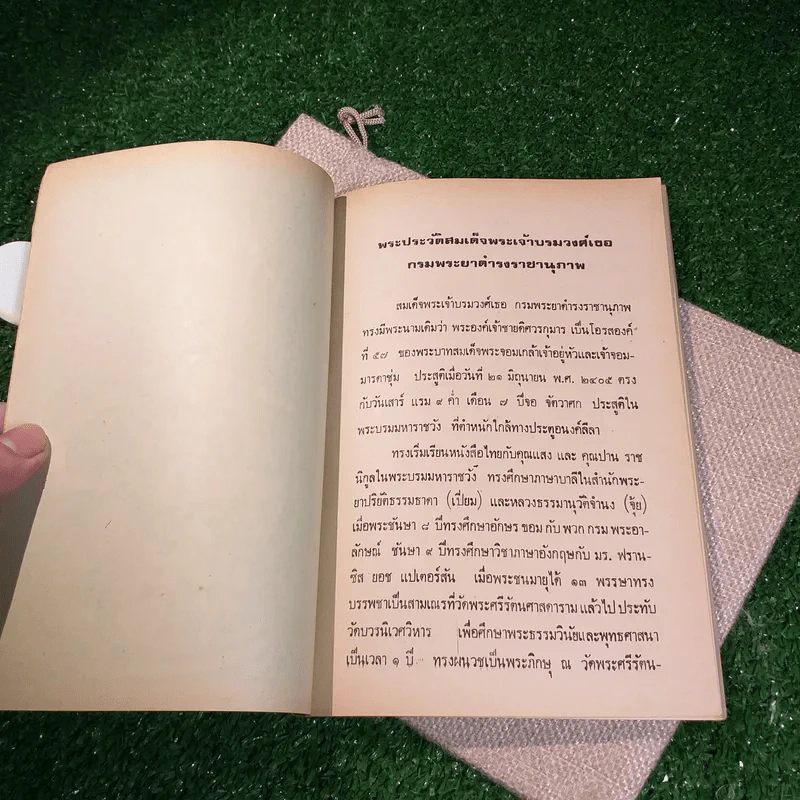 พระประวัติสมเด็จพระเจ้าบรมวงศ์เธอ
กรมพระยาดำรงราชานุภาพ
สมเด็จพระเจ้าบรมวงศ์เธอ กรมพระยาดำรงราชานุภาพ
ทรงมีพระนามเดิมว่า พระองค์เจ้าชายดิศวรกุมาร เป็นโอรสองค์
ที่ ๕๗ ของพระบาทสมเด็จพระจอมเกล้าเจ้าอยู่หัวและเจ้าจอม-
มารดาชุ่ม ประสูติเมื่อวันที่ ๒๑ มิถุนายน พ.ศ. ๒๔๐๕ ตรง
กับวันเสาร์ แรม ๙ ค่ำ เดือน ๗ ปีจอ จัตวาศก ประสูติใน
พระบรมมหาราชวัง ที่ตำหนักใกล้ทางประตูอนงค์ลีลา
ทรงเริ่มเรียนหนังสือไทยกับคุณแสง และ คุณปาน ราช
นิกูลในพระบรมมหาราชวัง ทรงศึกษาภาษาบาลีในสำนักพระ-
ยาปริยัติธรรมธาดา (เปี่ยม) และหลวงธรรมานุวัติจำนง (จุ้ย)
เมื่อพระชันษา ๘ ปีทรงศึกษาอักษร ขอม กับ พวก กรม พระอา-
ลักษณ์ ชันษา ๙ ปีทรงศึกษาวิชาภาษาอังกฤษกับ มร. ฟราน-
ซิส ยอช แปเตอร์สัน เมื่อพระชนมายุได้ ๑๓ พรรษาทรง
บรรพชาเป็นสามเณรที่วัดพระศรีรัตนศาสดาราม แล้วไป ประทับ
วัดบวรนิเวศวิหาร เพื่อศึกษาพระธรรมวินัยและพุทธศาสนา
เป็นเวลา ๑ ปี ทรงผนวชเป็นพระภิกษุ ณ วัดพระศรีรัตน-